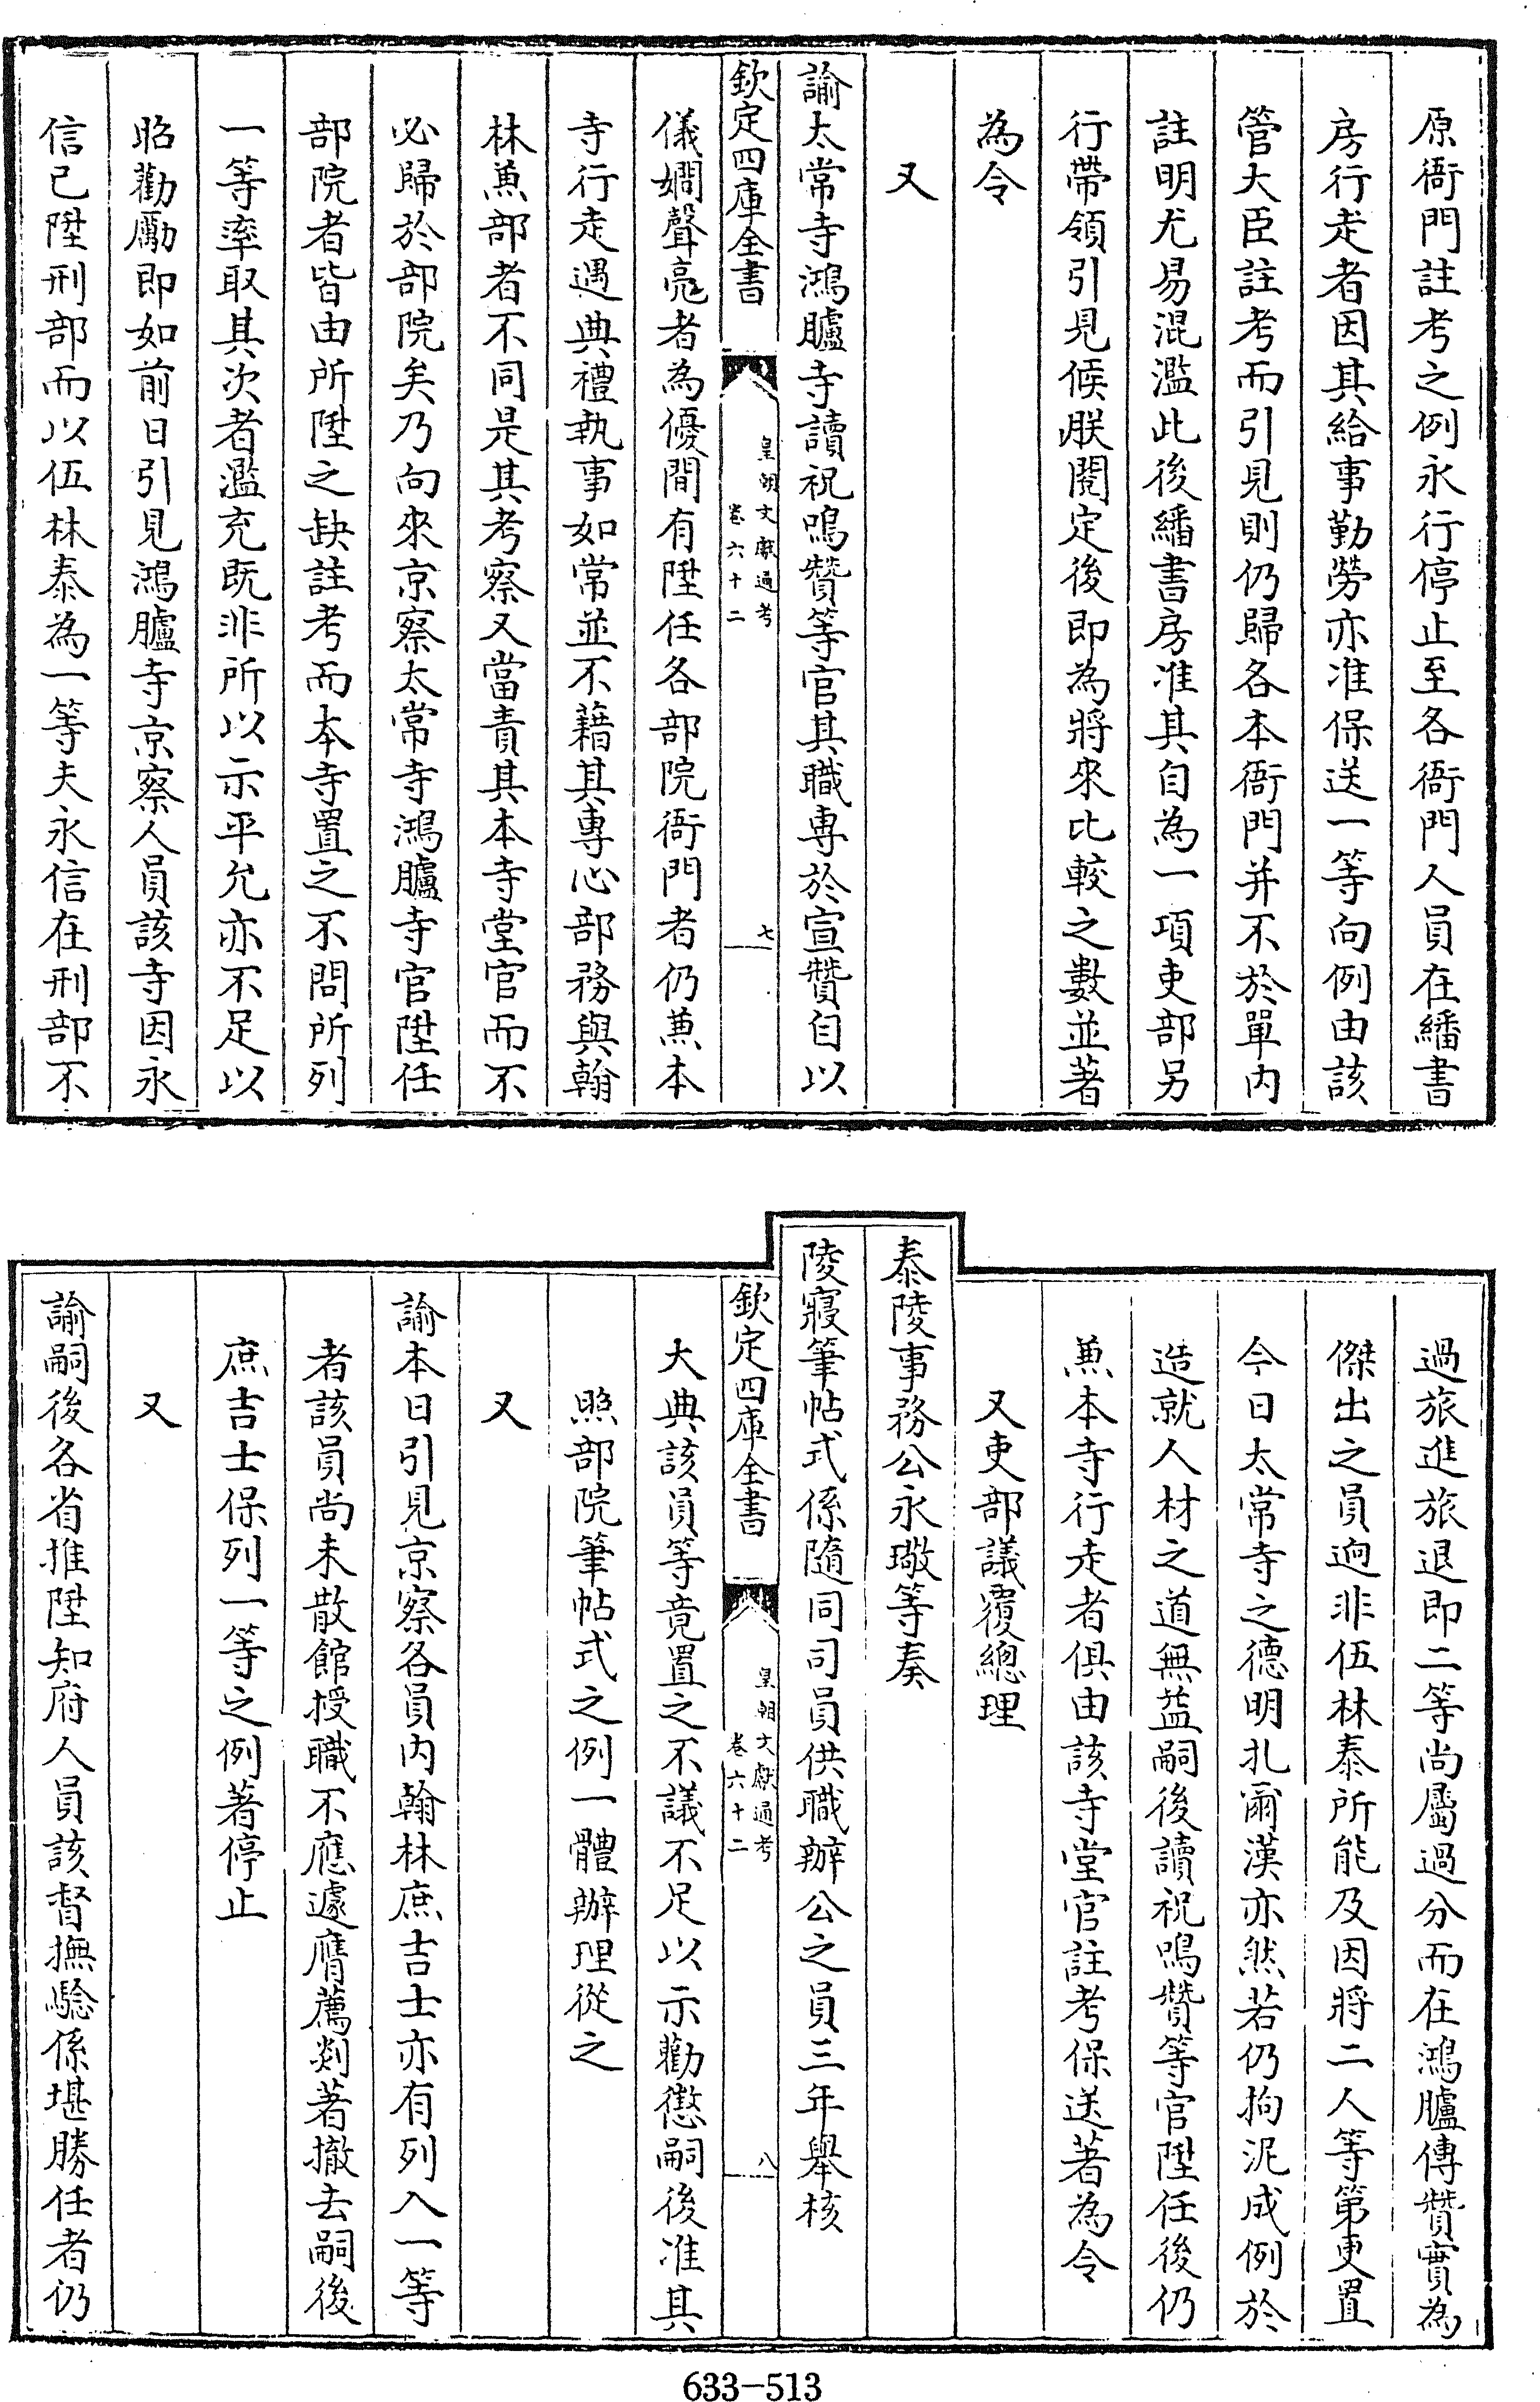 原衙門註考之例永行停止至各衙門人員在繙書
房行走者因其給事勤勞亦准保送一等向例由該
管大臣註考而引見則仍歸各本衙門并不於單內
註明尤易混濫此後繙書房准其自為一項吏部另
行帶領引見候朕閱定後即為將來比較之數並著
為令
又
諭太常寺鴻臚寺讀祝鳴贊等官其職専於宣贊自以
欽定四庫全書
皇朝文獻通考
卷六十二
七
儀嫺聲亮者為優間有陞任各部院衙門者仍兼本
寺行走遇典禮執事如常並不藉其專心部務與翰
林兼部者不同是其考察又當責其本寺堂官而不
必歸於部院矣乃向來京察太常寺鴻臚寺官陞任
部院者皆由所陞之缺註考而本寺置之不問所列
一等率取其次者濫充既非所以示平允亦不足以
昭勸勵即如前日引見鴻臚寺京察人員該寺因永
信已陞刑部而以伍林泰為一等夫永信在刑部不
過旅進旅退即二等尚屬過分而在鴻臚傳贊實為
傑出之員迥非伍林泰所能及因將二人等第更置
今日太常寺之德明扎爾漢亦然若仍拘泥成例於
造就人材之道無益嗣後讀祝鳴贊等官陞任後仍
兼本寺行走者俱由該寺堂官註考保送著為令
又吏部議覆總理
泰陵事務公永璥等奏
陵寢筆帖式係隨同司員供職辦公之員三年舉核
欽定四庫全書
皇朝文獻通考
卷六十二
八
大典該員等竟置之不議不足以示勸懲嗣後准其
照部院筆帖式之例一體辦理從之
又
諭本日引見京察各員内翰林庶吉士亦有列入一等
者該員尚未散館授職不應遽膺薦剡著撤去嗣後
庶吉士保列一等之例著停止
又
諭嗣後各省推陞知府人員該督撫驗係堪勝任者仍
633-513